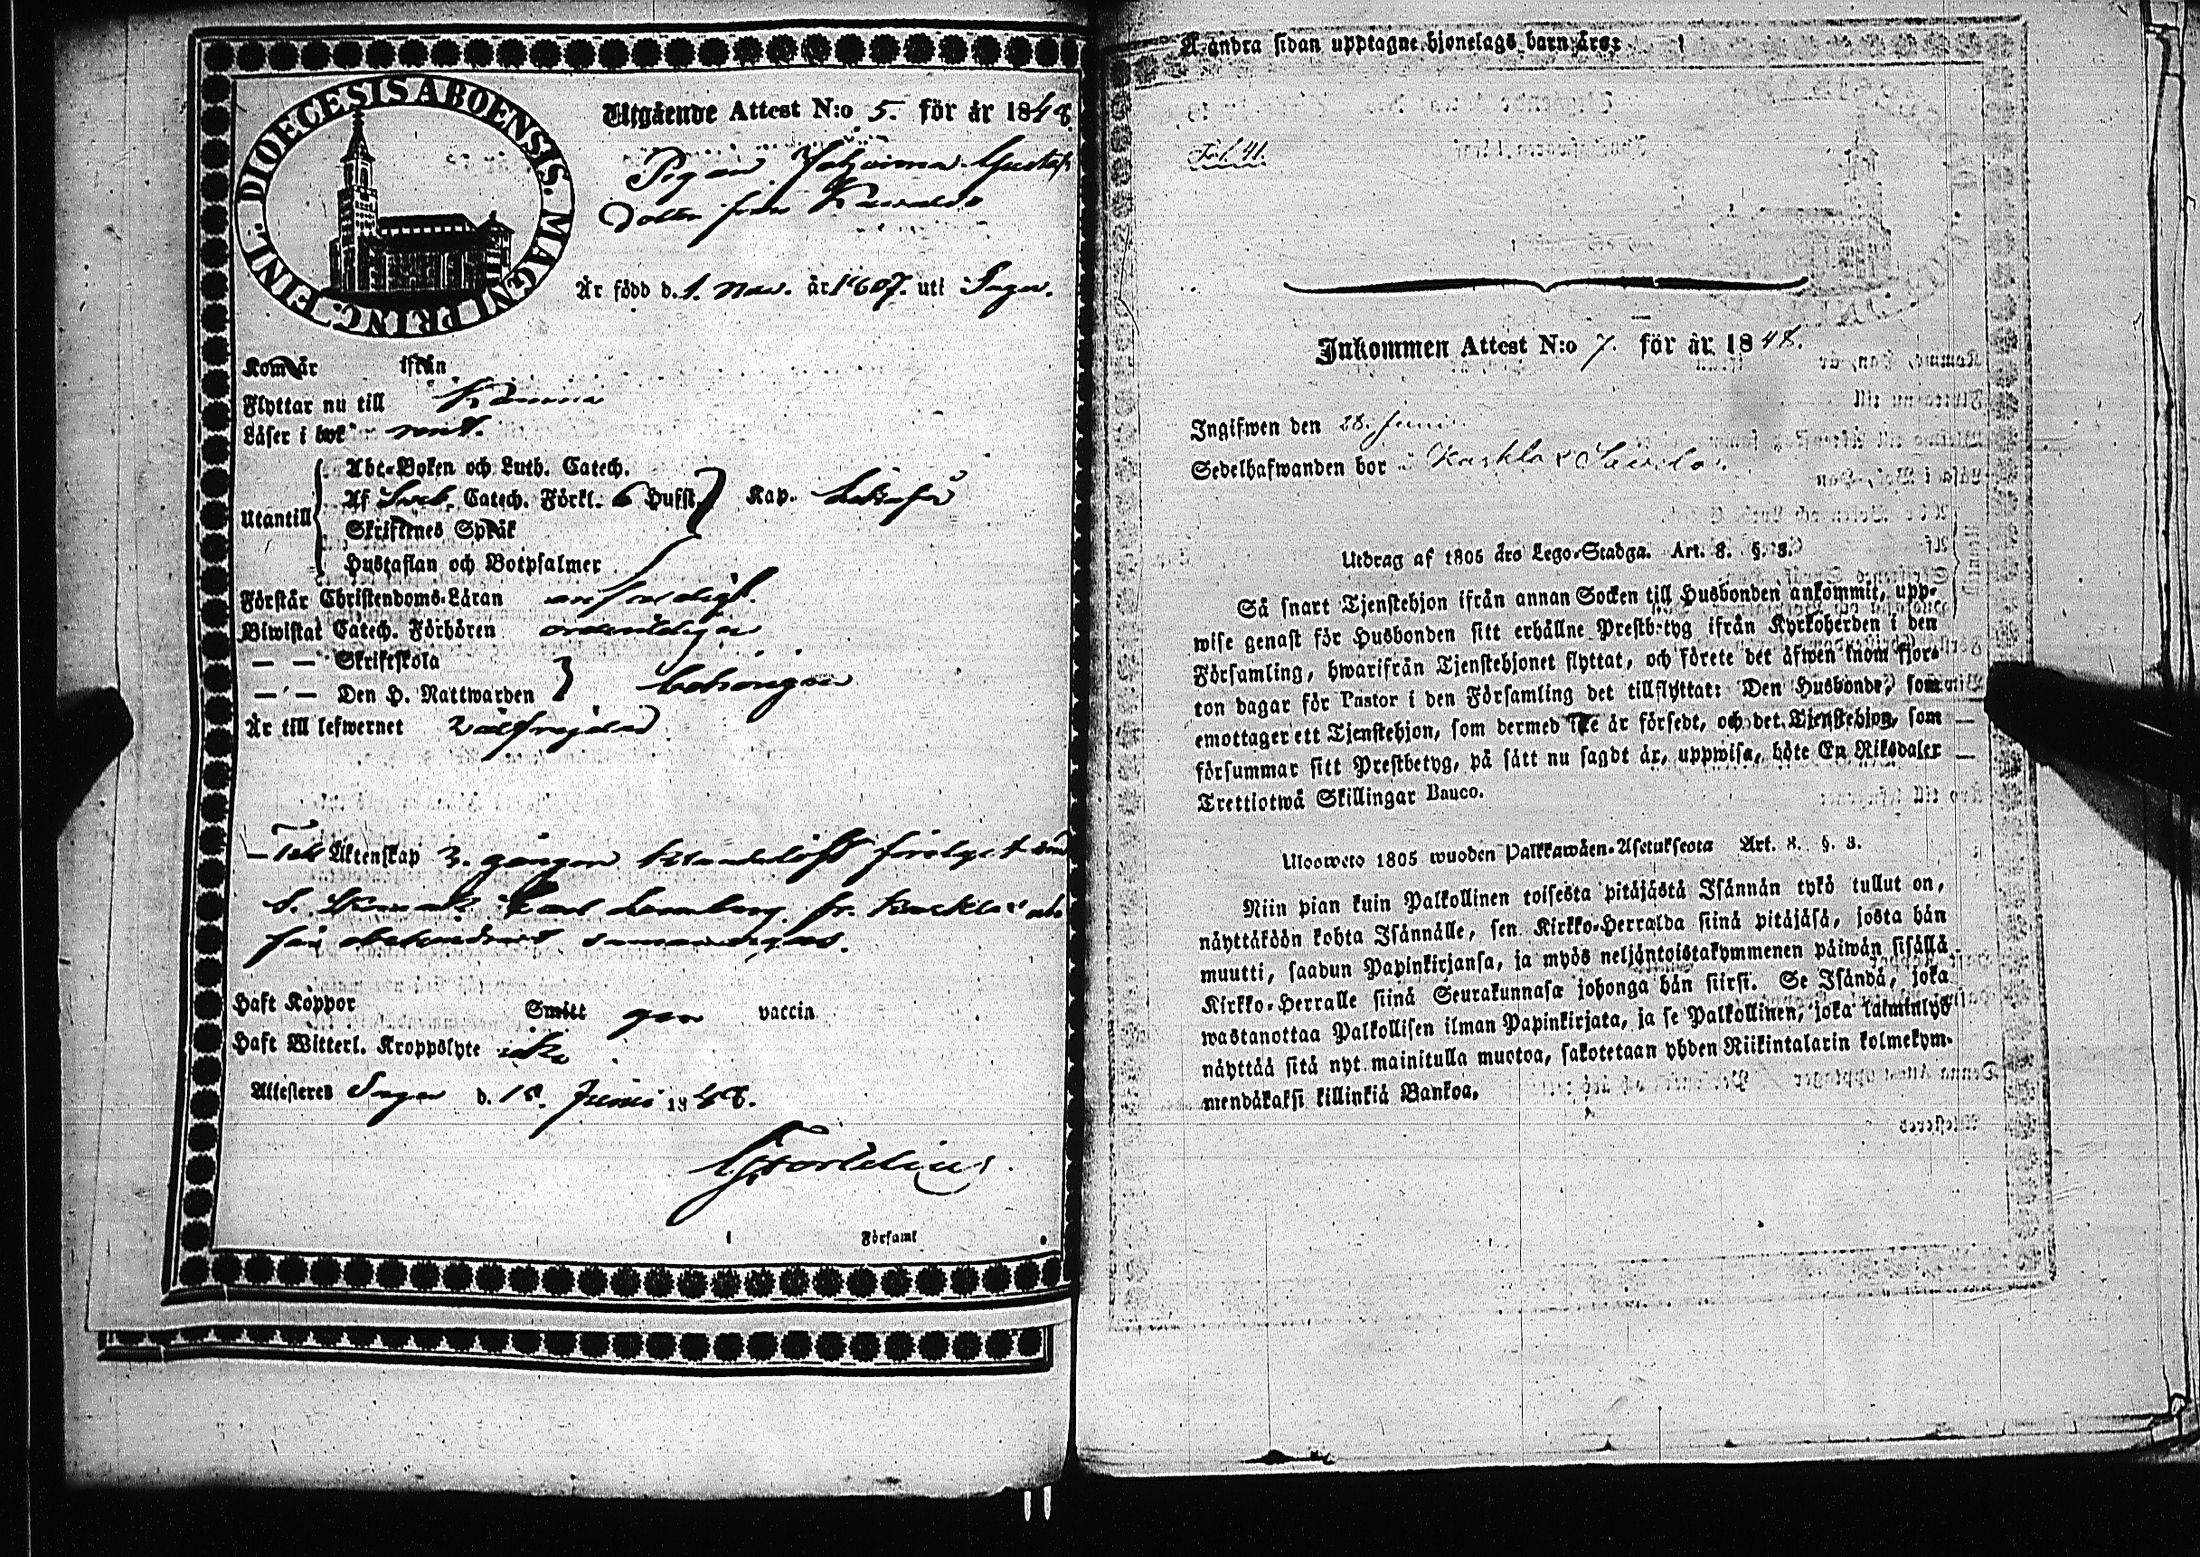 DIOECESIS ABOENSIS. MAGNI PRINC. FINL.
Utgående Attest N:o 5. för år 1848.
Pigan Johanna Gustafs
dotter från
Är född d. 1. Nov. år 1807. uti Inga.
Kom år ifrån
Flyttar nu till
Läser i bok
Abc-Boken och Luth. Catech.
Af Sveb. Catech. Förkl. 6 Hufst. Kap.
Utantill
Skriftenes Språk
Hustaflan och Botpsalmer
Förstår Christendoms-Läran
Biwistat Catech. Förhören ordentligen
— — Skriftskola
— — Den H. Nattwarden behörigen
Är till lefwernet wälfrejdad
Till Äktenskap 3. gången
Carl fr.
Haft Koppor Smitt gen vaccin
Haft Witterl. Kroppslyte icke
Attesteres Inga d. 18. Junii 1848.
Församl
Å andra sidan upptagne hjonelags barn äro:
Fol. 41.
Inkommen Attest N:o 7. för år 1848.
Ingifwen den 28. Junii
Sedelhafwanden bor i
Utdrag af 1805 års Lego-Stadga. Art. 8. §. 8.
Så snart Tjenstehjon ifrån annan Socken till Husbonden ankommit, upp-
wise genast för Husbonden sitt erhållne Prestbetyg ifrån Kyrkoherden i den
Församling, hwarifrån Tjenstehjonet flyttat, och förete det äfwen inom fjor-
ton dagar för Pastor i den Församling det tillflyttat: Den Husbonde, som
emottager ett Tjenstehjon, som dermed icke är försedt, och det Tjenstehjon, som
försummar sitt Prestbetyg, på sätt nu sagdt är, uppwisa, böte En Riksdaler
Trettiotwå Skillingar Banco.
Ulosweto 1805 wuoden Palkkawäen-Asetuksesta Art. 8. §. 8.
Niin pian kuin Palkollinen toisesta pitäjästä Isännän tykö tullut on,
näyttäköön kohta Isännälle, sen Kirkko-Herralda siinä pitäjäsä, josta hän
muutti, saadun Papinkirjansa, ja myös neljäntoistakymmenen päiwän sisällä
Kirkko-Herralle siinä Seurakunnasa johonga hän siirsi. Se Isändä, joka
wastanottaa Palkollisen ilman Papinkirjata, ja se Palkollinen, joka laiminlyö
näyttää sitä nyt mainitulla muotoa, sakotetaan yhden Riikintalarin kolmekym-
mendäkaksi killinkiä Bankoa.